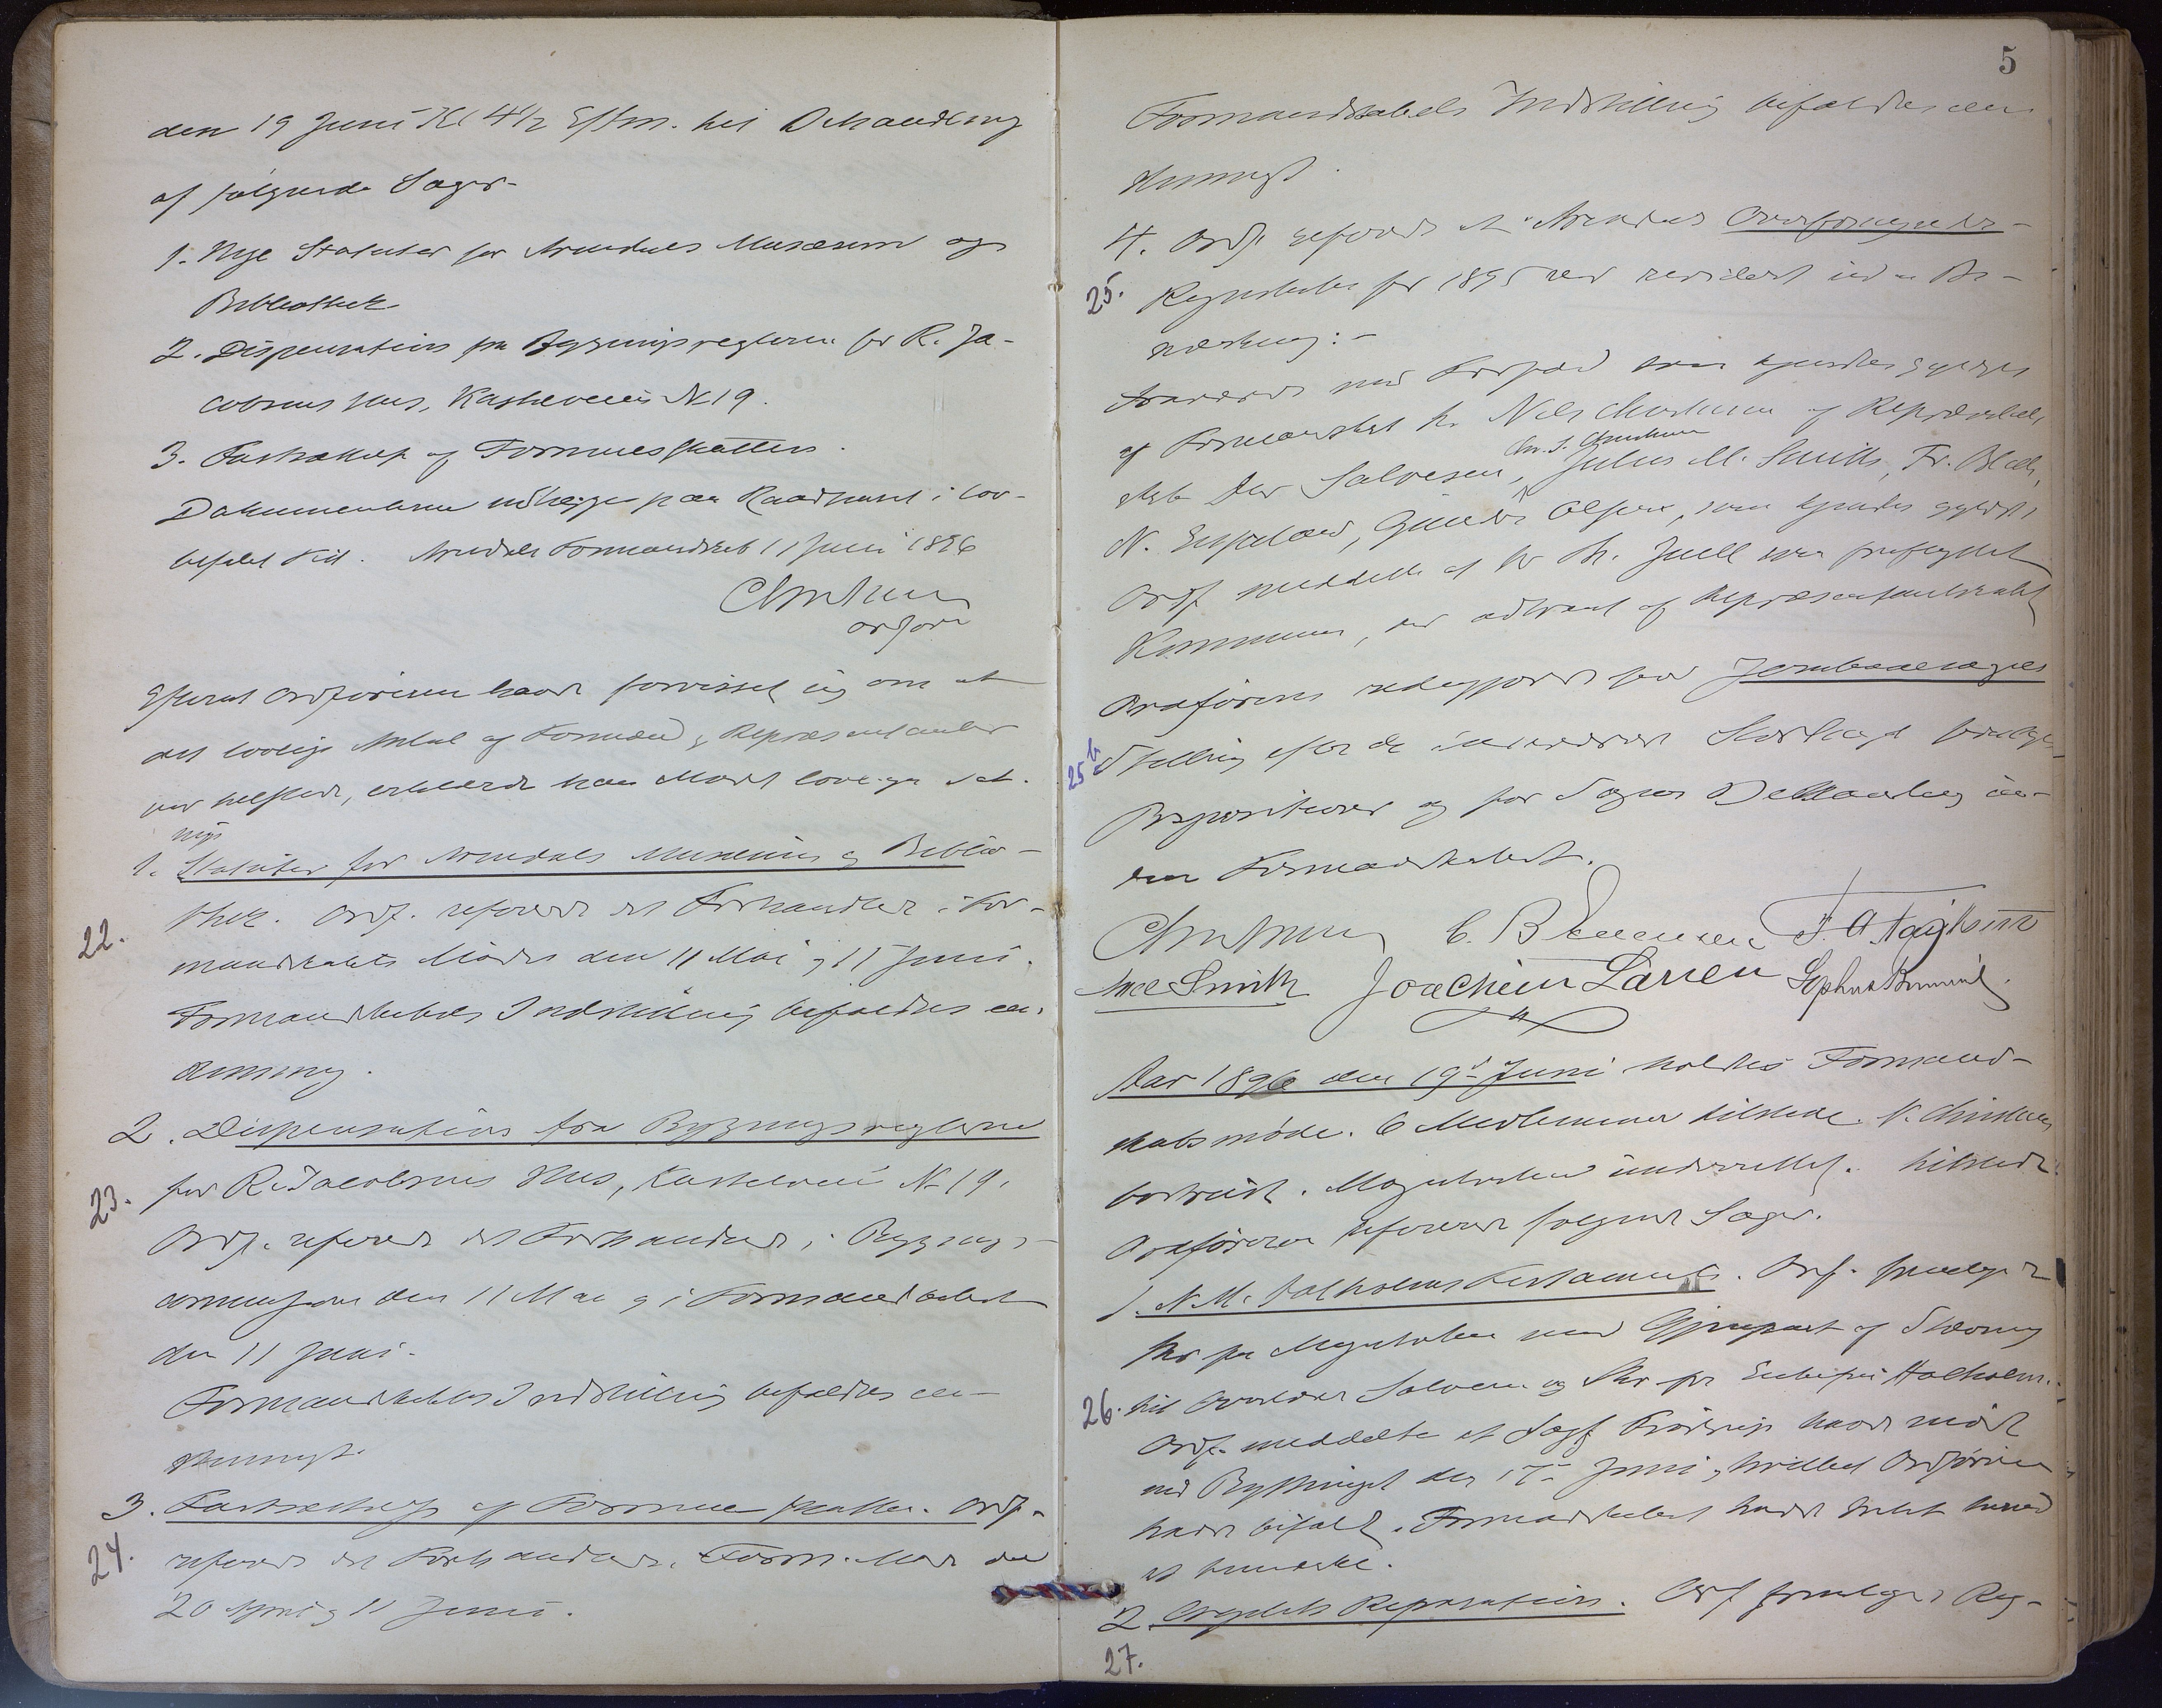 den 19 Juni Kl 4 1/2 Eftm. til Behandling
af følgende Sager.
1. Nye Statuter for Arendals Musæum og
Bibliothek
2. Dispensation fra Bygningsreglerne for R. Ja-
cobsens Hus, Kastelveien N 19.
3. Fastsættelse af Formuesskatten.
Dokumenterne udlægges paa Raadhuset i lov-
befalet Tid. Arendals Formandskab 11 Juni 1896
Christensen
ordfører
Efterat Ordføreren havde forvisset sig om at
det lovlige Antal af Formænd og Repræsentanter
var tilstede, erklærede han Mødet lovligen sat.
nye
1. Statuter for Arendals Musæum og Biblio-
22.
thek. Ordf. refererede det Forhandlede i For-
mandskabets Møder den 11 Mai og 11 Juni.
Formandskabets Indstilling bifaldtes en-
stemmig.
2. Dispensation fra Bygningsreglerne
23.
for R. Jacobsens Hus, Kastelveien N 19.
Ordf. refererede det Forhandlede i Bygnings-
commissionen den 11 Mai og i Formandskabet
den 11 Juni.
Formandskabets Indstilling bifaldtes en-
stemmigt.
3. Fastsættelse af Formuesskatten. Ordf.
24.
refererede det Forhandlede i Form. Møde den
20 April og 11 Juni.
5
Formandskabets Indstilling bifaldtes een
stemmigt.
4. Ordf. refererede at Arendals Overformynder-
25.
Regnskaber for 1895 var revideret uden Be-
mærkning:-
Fraværende med Forfald som kjendtes gyldigt
af Formandskabet Hr. Niels Christensen af Repræsentant-
Chr. S. Christensen
skabet Salvesen, Julius M. Smith, Fr. Blach,
N. Eugeland, Gunder Olsen, som kjendtes gyldigt
Ordf. meddelte at Hr Th. Juell var fraflyttet
Kommunen, var udtraadt af Repræsentantskabet
Ordføreren redegjorde for Jernbanesagens
25 b
Stilling efter de Storthinget
Propositioner og for Sagens Behandling in-
den Formandskabet.
Christensen
Smith Joachim Larsen
Aar 1896 den 19de Juni holdtes Formand-
skabsmøde. 6 Medlemmer tilstede. N. Christensen
bortreist. Magistraten underrettet. tilstede
Ordføreren refererede følgende Sager.
1. N. M. Dalholms Testamente. Ordf. fremlagde
Skr fra Magistraten med Gjenpart af Skrivning
26.
til Salvesen og Skr fra Enkefru Dalholm.
Ordf. meddelte at Sagf havde mødt
ved Bythinget den 17de Juni, hvilket Ordføreren
havde bifaldt. Formandskabet havde Intet herved
at bemærke.
2. Orgelets Reparation. Ordf fremlagde Reg-
27.